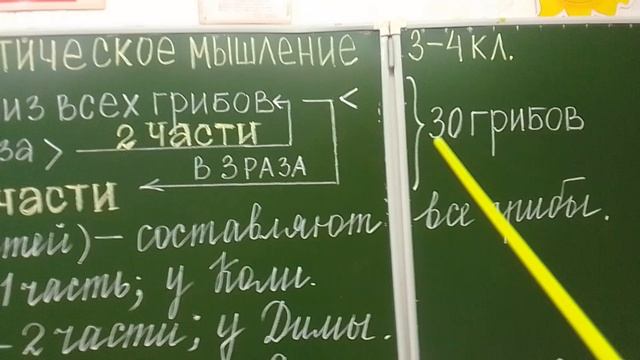 ТИЧЕСКОЕ МЫШЛЕНИЕ 3-4 КЛ.
ИЗ ВСЕХ ГРИБОВ <
2 ЧАСТИ 30 ГРИБОВ
ЗА >
В 3 РАЗА
ЧАСТИ
тей) - составляют все грибы.
1 часть; у Коли.
- 2 части; у Димы.